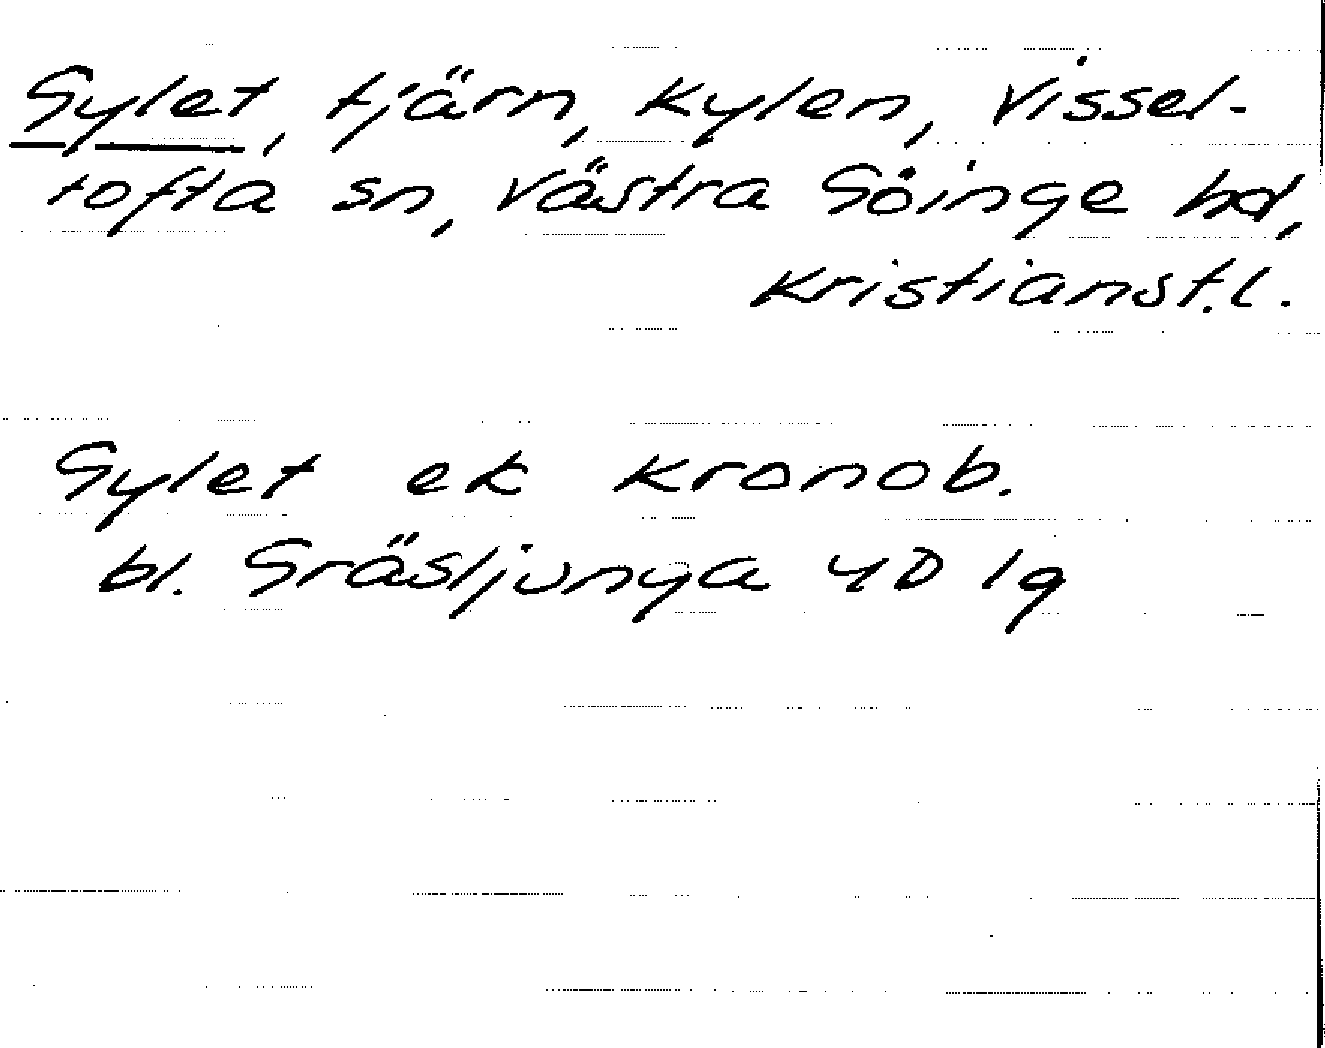 Gylet, tjärn, Kylen, Vissel-
tofta sn, Västra Göinge hd,
Kristianst.l.
Gylet ek Kronob.
bl. Gräsljunya 4D 1g